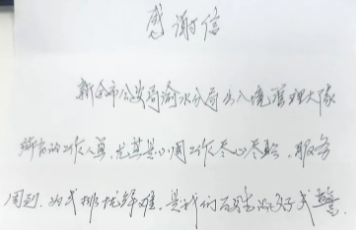 感谢信
新余市公安局渝水分局出入境管理大队
所有的工作人员,尤其是小周工作尽心尽职,服务
周到,为我排忧解难,是我们百姓的好民警